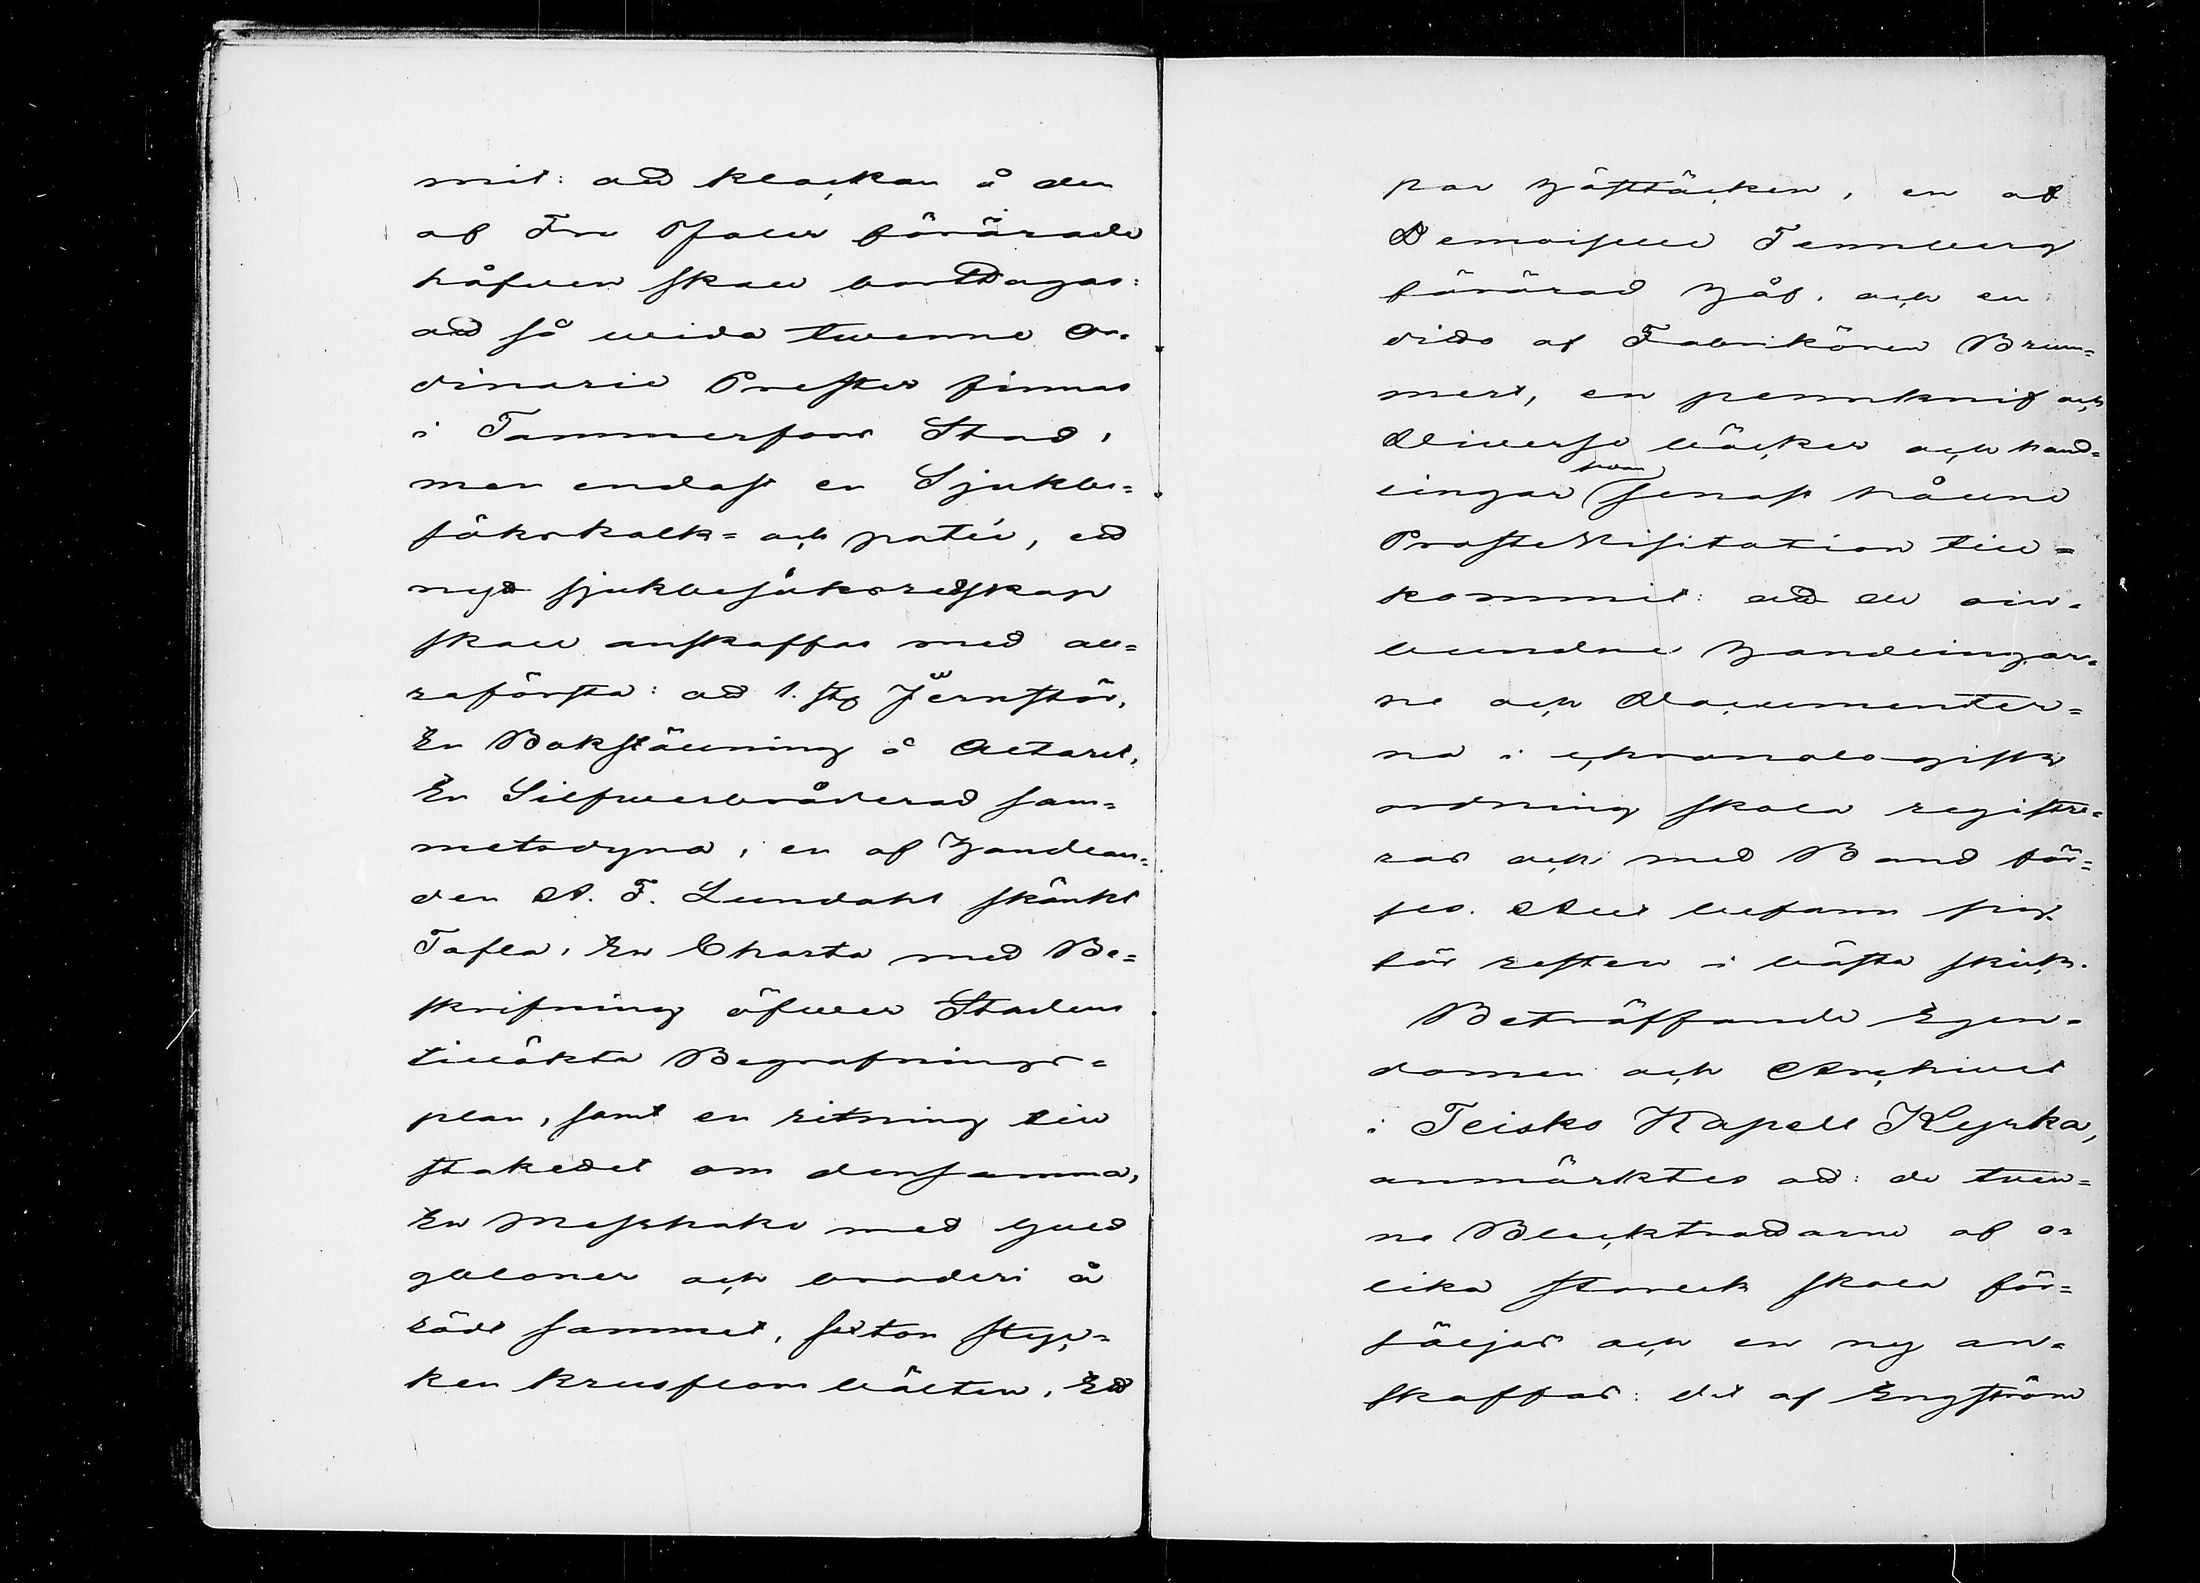 mit: att klockan å den
af Fru Ifaler förärade
håfven skall borttagas:
att så vida tvenne Or-
dinarie Prester finnas
i Tammerfors Stad,
men endast en Sjukbe-
sökskalk= och patén, ett
nytt sjukbesöksredskap
skall anskaffas med all-
raförsta: att 1. st. Jernstör,
En Bokställning å Altaret,
En Silfverbråderad sam-
metsdyna, en af Handlan-
den A. F. Lundahl skänkt
Tafla, En Charta med Be-
skrifning öfver Stadens
tillökta Begrafnings-
plan, samt en ritning till
staketet om densamma,
En Messhake med Guld
galoner och broderi å
rödt sammet, sexton styc-
ken krusflorsbälten, Ett
par Hästtäcken, en af
Demoiselle Tennberg
förärad Håf, och en
dito af Fabrikören Brum-
mert, en pennknif och
diverse böcker och hand-
lingar som senast hållne
Prostevisitation till-
kommit: att de oin-
bundne Handlingar-
ne och Documenter-
na i chronologisk
ordning skola registre-
ras och med Band för-
ses. Allt befanns sig
för resten i bästa skick.
Beträffande Egen-
domen och Archivet
i Teisko Kapell Kyrka,
anmärktes att: de tven-
ne Blecktrattarne af o-
lika storlek skola för-
säljas och en ny an-
skaffas: det af Engström